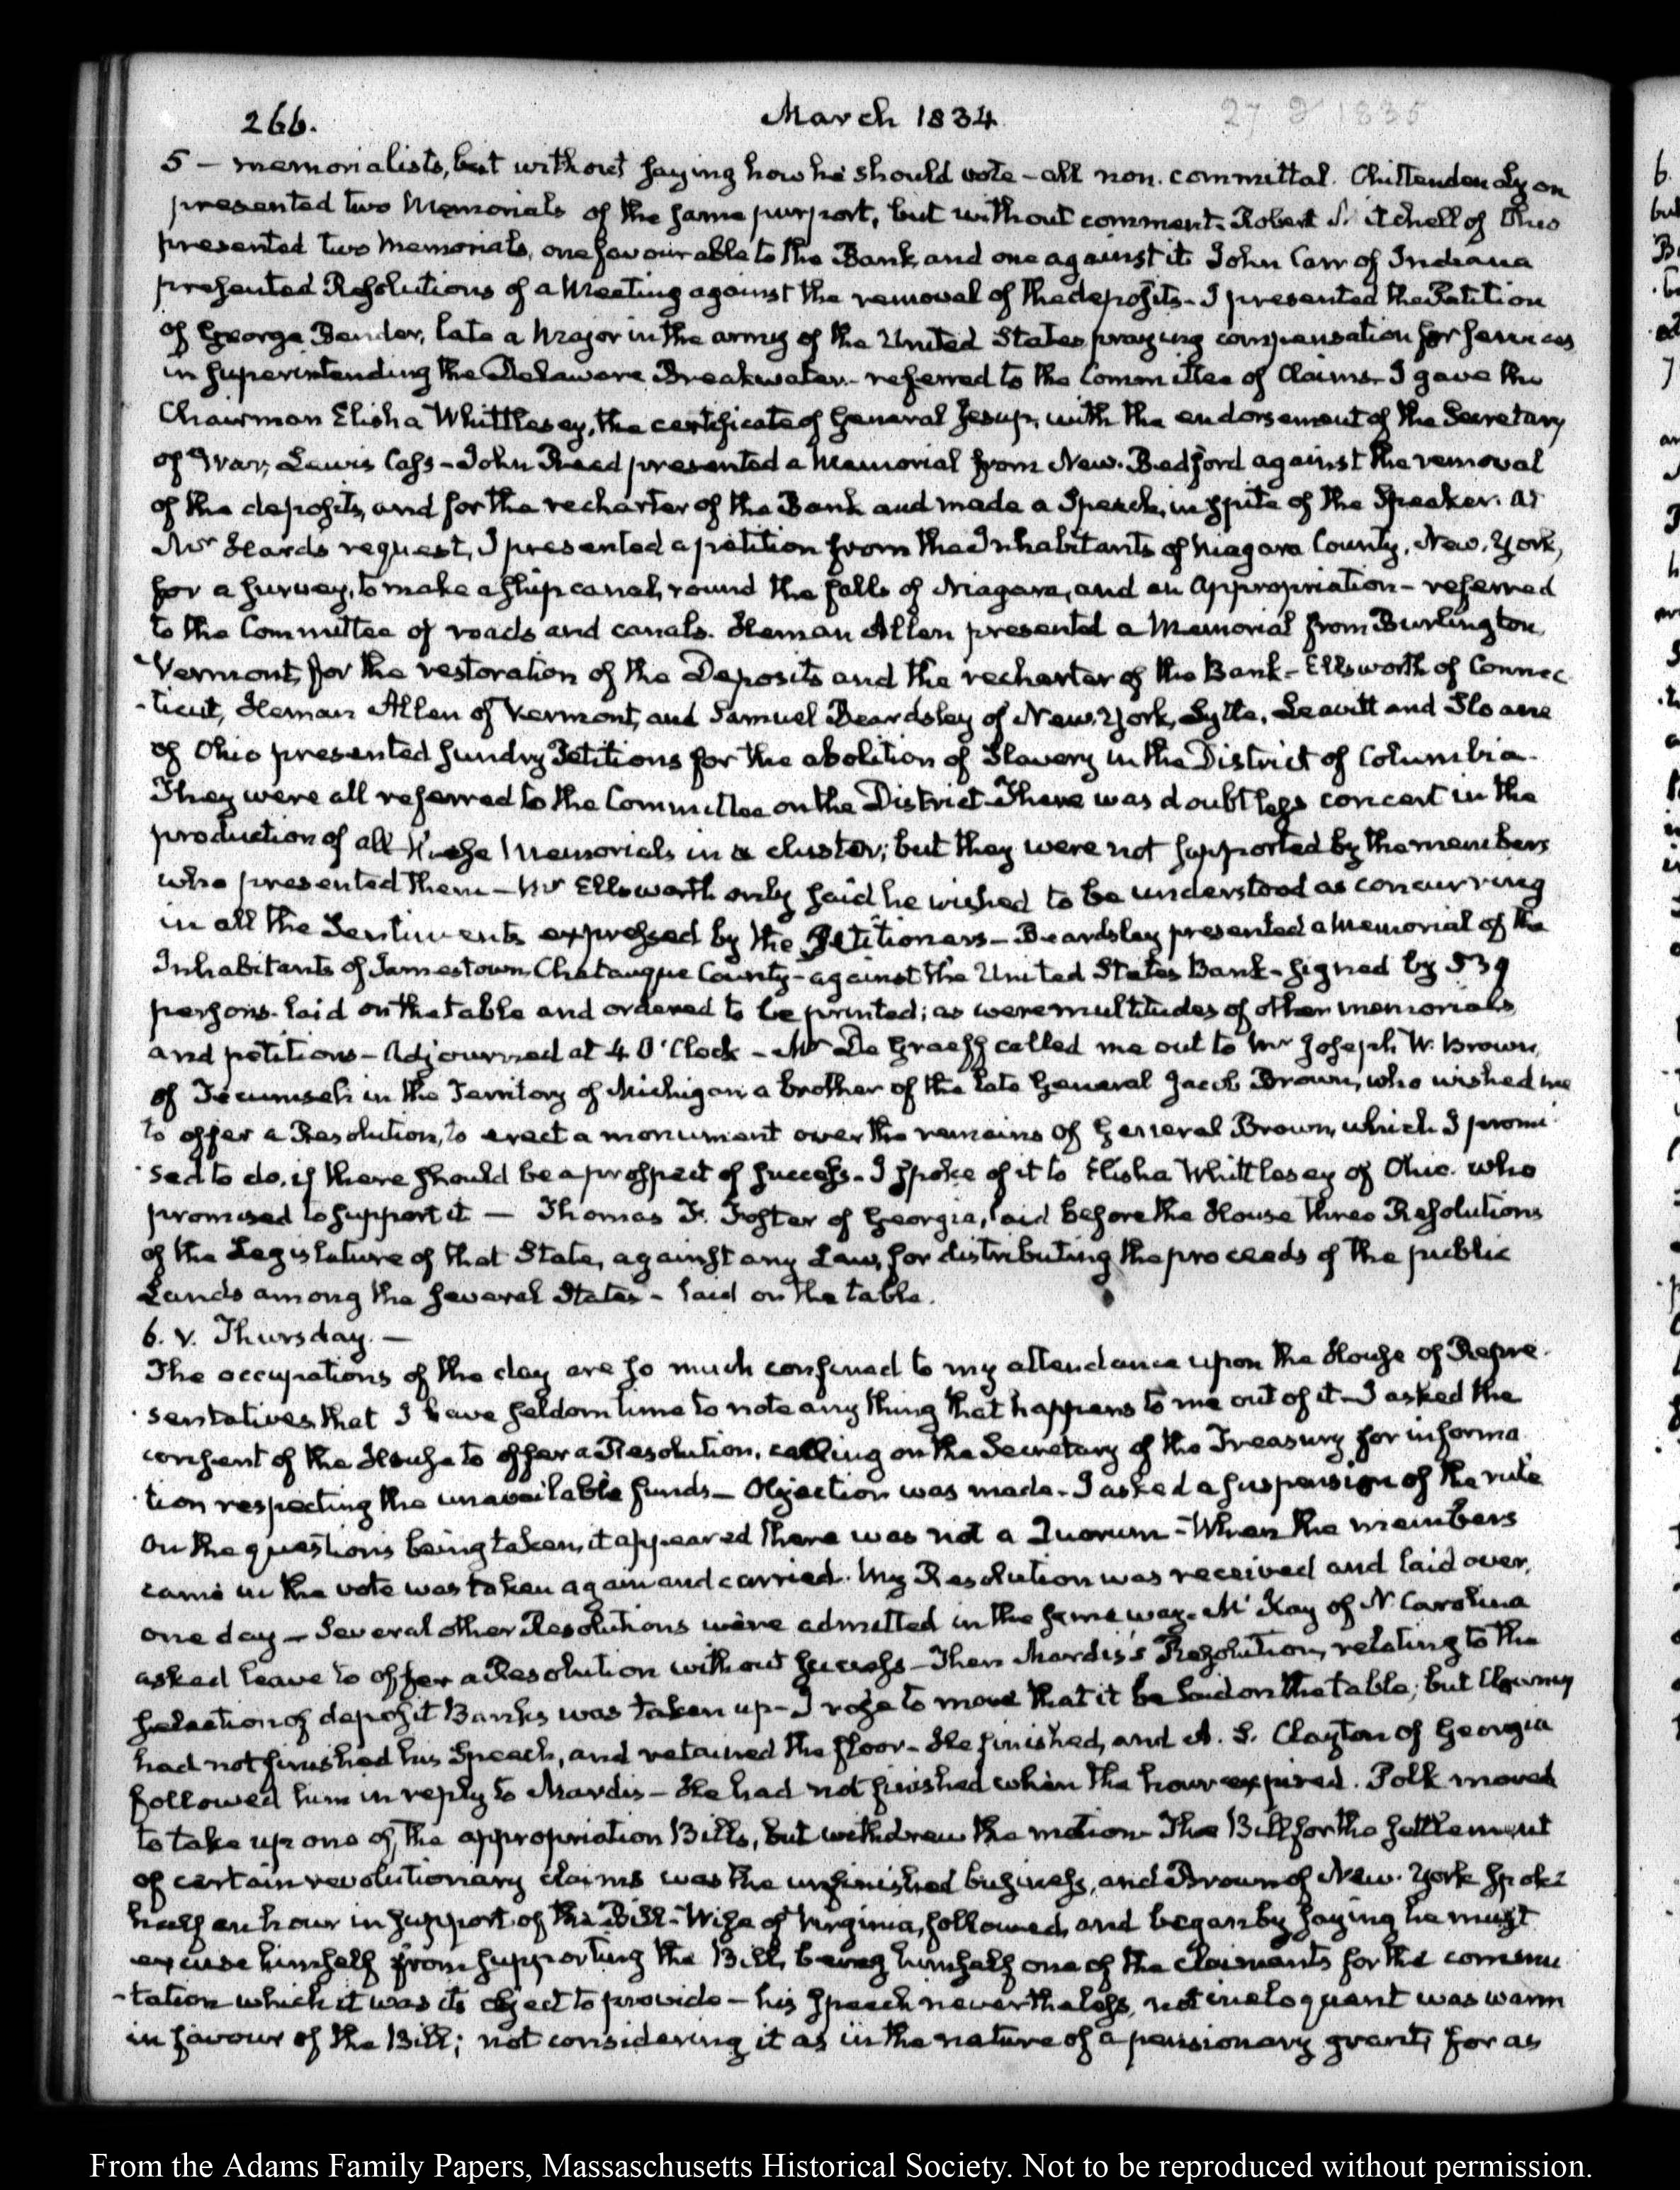 266.
March 1834
5 – memorialists, but without saying how he should vote – all non. committal. Chittenden Lyon
presented two Memorials of the same purport, but without comment. Robert Mitchell of Ohio
presented two memorials, one favourable to the Bank, and one against it John Carr of Indiana
presented Resolutions of a Meeting against the removal of the deposits – I presented the Petition
of George Bender, late a Major in the army of the United States praying compensation for services
in superintending the Delaware Breakwater – referred to the Committee of Claims – I gave the
Chairman Elisha Whittlesey, the certificate of General Jesup, with the endorsement of the Secretary
of War, Lewis Cass – John Reed presented a Memorial from New-Bedford against the removal
of the deposits, and for the recharter of the Bank and made a Speech, in spite of the Speaker. At
Mr Heards request, I presented a petition from the Inhabitants of Niagara County, New-York,
for a survey, to make a ship canal, round the falls of Niagara, and an appropriation – referred
to the Committee of roads and canals. Heman Allen presented a Memorial from Burlington,
Vermont, for the restoration of the Deposits and the recharter of the Bank – Ellsworth of Connec
-ticut, Heman Allen of Vermont, and Samuel Beardsley of New-York, Lytle, Leavitt and Sloane
of Ohio presented sundry Petitions for the abolition of Slavery in the District of Columbia.
They were all referred to the Committee on the District – There was doubtless concert in the
production of all these Memorials in a cluster; but they were not supported by the members
who presented them – Mr Ellsworth only said he wished to be understood as concurring
in all the Sentiments expressed by the Petitioners – Beardsley presented a Memorial of the
Inhabitants of Jamestown, Chatauque County – against the United States Bank – signed by 539
persons. laid on the table and ordered to be printed; as were multitudes of other memorials
and petitions – Adjourned at 4 O'Clock – Mr De Graeff called me out to Mr Joseph W. Brown,
of Tecumseh in the Territory of Michigan, a brother of the late General Jacob Brown, who wished me
to offer a Resolution, to erect a monument over the remains of General Brown, which I promi
-sed to do, if there should be a prospect of success – I spoke of it to Elisha Whittlesey of Ohio. who
promised to support it – Thomas F. Foster of Georgia, laid before the House three Resolutions
of the Legislature of that State, against any Law, for distributing the proceeds of the public
Lands among the several States – laid on the table.
6. V. Thursday. –
The occupations of the day are so much confined to my attendance upon the House of Repre-
-sentatives that I have seldom time to note any thing that happens to me out of it – I asked the
consent of the House to offer a Resolution, calling on the Secretary of the Treasury for informa
-tion respecting the unavailable funds – Objection was made – I asked a suspension of the rule
On the questions being taken, it appeared there was not a Quorum – When the members
came in the vote was taken again and carried. My Resolution was received and laid over,
one day – Several other Resolutions were admitted in the same way – McKay of N. Carolina
asked leave to offer a Resolution without success – Then Mardis's Resolution, relating to the
selection of deposit Banks was taken up – I rose to move that it be laid on the table; but
had not finished his Speech, and retained the floor – He finished, and A. S. Clayton of Georgia
followed him in reply to Mardis – He had not finished when the hour expired. Polk moved
to take up one of the appropriation Bills, but withdrew the motion – The Bill for the settlement
of certain revolutionary claims was the unfinished business, and Brown of New-York spoke
half an hour in support of the Bill – Wise of Virginia, followed, and began by saying he must
excuse himself from supporting the Bill, being himself one of the claimants for the commu
-tation which it was its object to provide – his Speech nevertheless, not ineloquent was warm
in favour of the Bill; not considering it as in the nature of a pensionary grant, for as
From the Adams Family Papers, Massachusetts Historical Society. Not to be reproduced without permission.